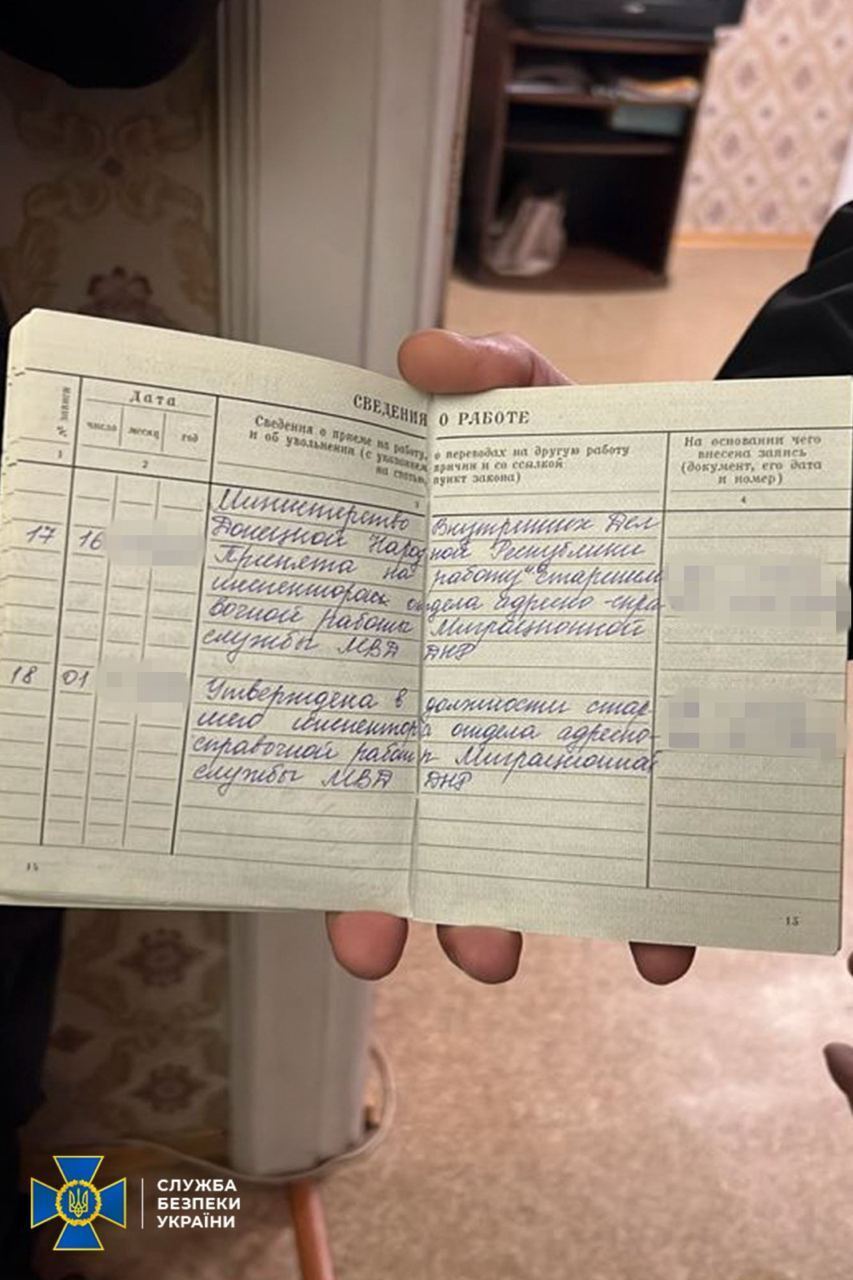 СВЕДЕНИЯ О РАБОТЕ
№ записи
Дата
число месяц год
Сведения о приеме на работу, о переводах на другую работу
и об увольнении (с указанием причин и со ссылкой
на статью, пункт закона)
На основании чего
внесена запись
(документ, его дата
и номер)
1 2 3 4
Министерство Внутренних Дел
Донецкой Народной Республики
17 16 Принята на работу старшим
инспектором отдела адресно-спра
вочной работы Миграционной
службы МВД ДНР
18 01 Утверждена в должности стар
шего инспектора отдела адресно-
справочной работы Миграционной
службы МВД ДНР
14 15
СЛУЖБА
БЕЗПЕКИ
УКРАЇНИ